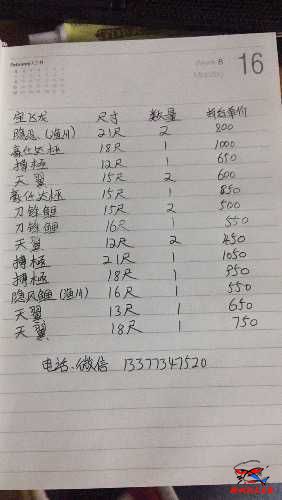 February 2月
Week 8
Monday 16
宝飞龙 尺寸 数量 单台单价
隐忍(渔川) 21尺 2 800
高仕达極 18尺 1 1000
搏極 12尺 1 650
天翼 15尺 2 600
高仕达極 15尺 1 850
刀锋鲤 15尺 2 500
刀锋鲤 16尺 1 550
天翼 12尺 2 450
搏極 21尺 1 1050
搏極 18尺 1 950
隐风鲤(渔川) 16尺 1 550
天翼 13尺 1 650
天翼 18尺 1 750
电话.微信 13377347520